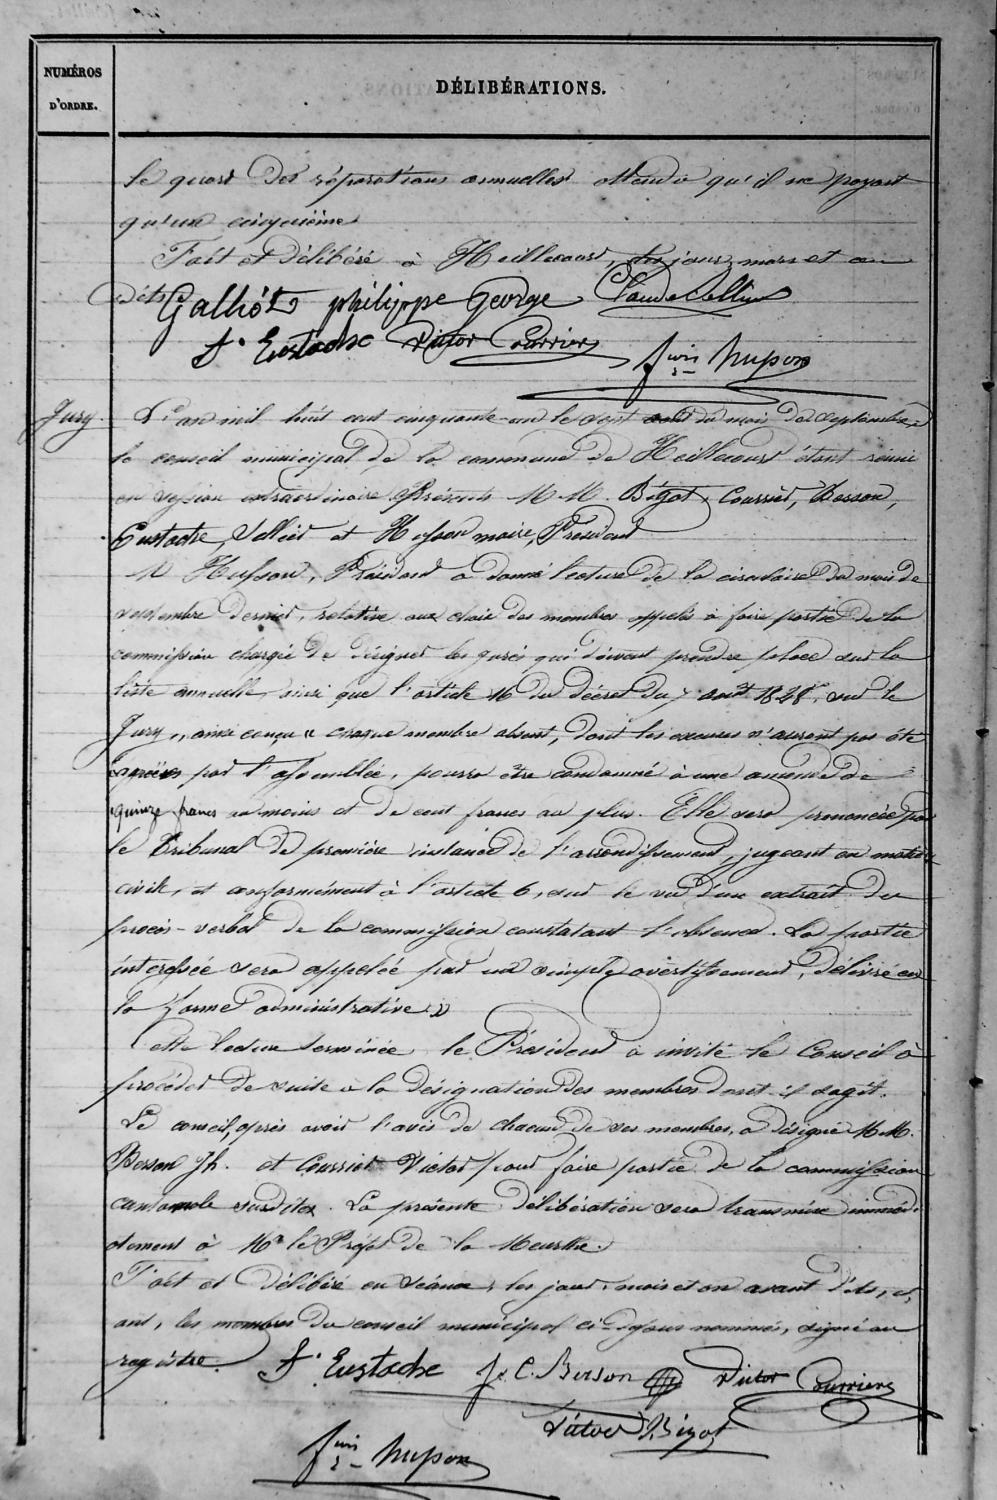 NUMÉROS
D'ORDRE.
DÉLIBÉRATIONS.
le quart des réparations annuelles attendu qu'il ne payait
qu'un cinquième
Fait et délibéré à Heillecourt, les jour, mois et an
dits
Galliot philippe George Claude Cellier
F. Eustache Victor Courrier
fcois Husson
Jury.
L'an mil huit cent cinquante-un le sept août du mois de septembre,
le conseil municipal de la commune de Heillecourt étant réuni
en session extraordinaire Présents M.M. Bigot, Courrier, Berson,
Eustache, Sellier et Husson maire, Président
M Husson, Président a donné lecture de la circulaire du mois de
septembre dernier, relative aux choix des membres appelés à faire partie de la
commission chargée de désigner les jurés qui doivent prendre place sur la
liste annuelle, ainsi que l'article 16 du décret du 7 août 1848, sur le
Jury, ainsi conçu " chaque membre absent, dont les excuses n'auront pas été
agréées par l'assemblée, pourra être condamné à une amende de
quinze francs au moins et de cent francs au plus. Elle sera prononcée par
le Tribunal de première instance de l'arrondissement, jugeant en matière
civile, et conformément à l'article 6, sur le vu d'un extrait du
procès-verbal de la commission constatant l'absence. La partie
intéressée sera appelée par un simple avertissement, délivré en
la forme administrative "
Cette lecture terminée, le Président a invité le Conseil à
procéder de suite à la désignation des membres dont il s'agit.
Le conseil, après avoir l'avis de chacun de ses membres, a désigné M.M.
Berson Jh. et Courrier Victor pour faire partie de la commission
cantonale susdite. La présente délibération sera transmise immédi-
atement à Mr le Préfet de la Meurthe.
Fait et délibéré en séance, les jour, mois et an avant dits, et,
ont, les membres du conseil municipal ci-dessus nommés, signé au
registre.
F. Eustache J. C. Berson Victor Courrier
Victor Bigot
fcois Husson